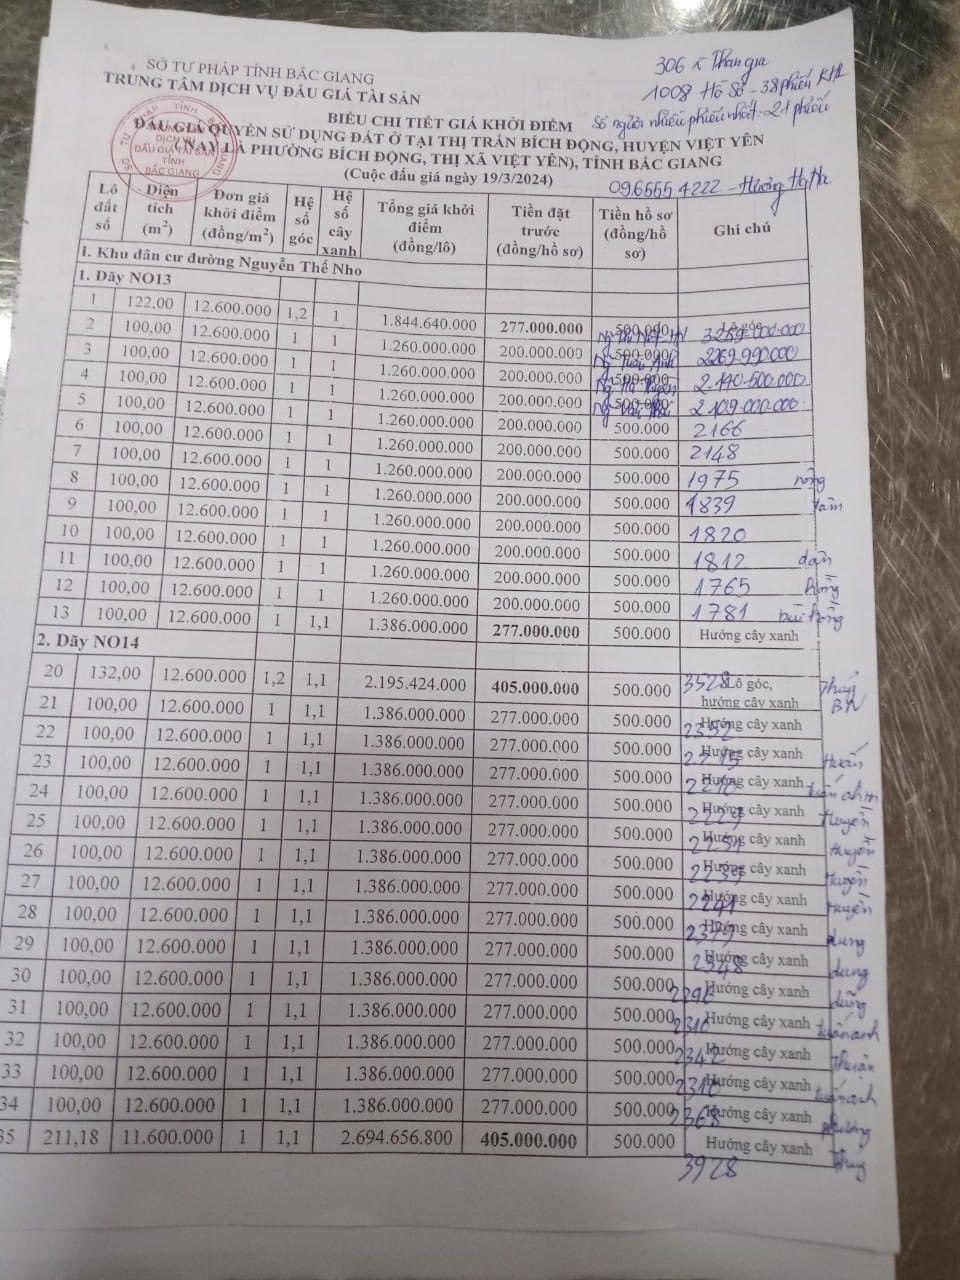 SỞ TƯ PHÁP TỈNH BẮC GIANG
TRUNG TÂM DỊCH VỤ ĐẤU GIÁ TÀI SẢN
306 Tham gia
1008 Hồ Sơ - 38 phiếu KHL
Số người nhiều phiếu nhất: 21 phiếu
BIỂU CHI TIẾT GIÁ KHỞI ĐIỂM
ĐẤU GIÁ QUYỀN SỬ DỤNG ĐẤT Ở TẠI THỊ TRẤN BÍCH ĐỘNG, HUYỆN VIỆT YÊN
(NAY LÀ PHƯỜNG BÍCH ĐỘNG, THỊ XÃ VIỆT YÊN), TỈNH BẮC GIANG
(Cuộc đấu giá ngày 19/3/2024)
Lô đất số Diện tích (m²) Đơn giá khởi điểm (đồng/m²) Hệ số góc Hệ số cây xanh Tổng giá khởi điểm (đồng/lô) Tiền đặt trước (đồng/hồ sơ) Tiền hồ sơ (đồng/hồ sơ) Ghi chú
I. Khu dân cư đường Nguyễn Thế Nho
1. Dãy NO13
1 122,00 12.600.000 1,2 1 1.844.640.000 277.000.000 500.000 Lô góc
2 100,00 12.600.000 1 1 1.260.000.000 200.000.000 500.000 2269.990.000
3 100,00 12.600.000 1 1 1.260.000.000 200.000.000 500.000 2.140.500.000
4 100,00 12.600.000 1 1 1.260.000.000 200.000.000 500.000 2.109.000.000
5 100,00 12.600.000 1 1 1.260.000.000 200.000.000 500.000 2166
6 100,00 12.600.000 1 1 1.260.000.000 200.000.000 500.000 2148
7 100,00 12.600.000 1 1 1.260.000.000 200.000.000 500.000 1975
8 100,00 12.600.000 1 1 1.260.000.000 200.000.000 500.000 1839
9 100,00 12.600.000 1 1 1.260.000.000 200.000.000 500.000 1820
10 100,00 12.600.000 1 1 1.260.000.000 200.000.000 500.000 1812
11 100,00 12.600.000 1 1 1.260.000.000 200.000.000 500.000 1765
12 100,00 12.600.000 1 1 1.260.000.000 200.000.000 500.000 1781
13 100,00 12.600.000 1 1,1 1.386.000.000 277.000.000 500.000 Hướng cây xanh
2. Dãy NO14
20 132,00 12.600.000 1,2 1,1 2.195.424.000 405.000.000 500.000 3528 Lô góc, hướng cây xanh
21 100,00 12.600.000 1 1,1 1.386.000.000 277.000.000 500.000 Hướng cây xanh
22 100,00 12.600.000 1 1,1 1.386.000.000 277.000.000 500.000 Hướng cây xanh
23 100,00 12.600.000 1 1,1 1.386.000.000 277.000.000 500.000 Hướng cây xanh
24 100,00 12.600.000 1 1,1 1.386.000.000 277.000.000 500.000 Hướng cây xanh
25 100,00 12.600.000 1 1,1 1.386.000.000 277.000.000 500.000 Hướng cây xanh
26 100,00 12.600.000 1 1,1 1.386.000.000 277.000.000 500.000 Hướng cây xanh
27 100,00 12.600.000 1 1,1 1.386.000.000 277.000.000 500.000 Hướng cây xanh
28 100,00 12.600.000 1 1,1 1.386.000.000 277.000.000 500.000 Hướng cây xanh
29 100,00 12.600.000 1 1,1 1.386.000.000 277.000.000 500.000 Hướng cây xanh
30 100,00 12.600.000 1 1,1 1.386.000.000 277.000.000 500.000 Hướng cây xanh
31 100,00 12.600.000 1 1,1 1.386.000.000 277.000.000 500.000 Hướng cây xanh
32 100,00 12.600.000 1 1,1 1.386.000.000 277.000.000 500.000 Hướng cây xanh
33 100,00 12.600.000 1 1,1 1.386.000.000 277.000.000 500.000 Hướng cây xanh
34 100,00 12.600.000 1 1,1 1.386.000.000 277.000.000 500.000 Hướng cây xanh
35 211,18 11.600.000 1 1,1 2.694.656.800 405.000.000 500.000 Hướng cây xanh
3928